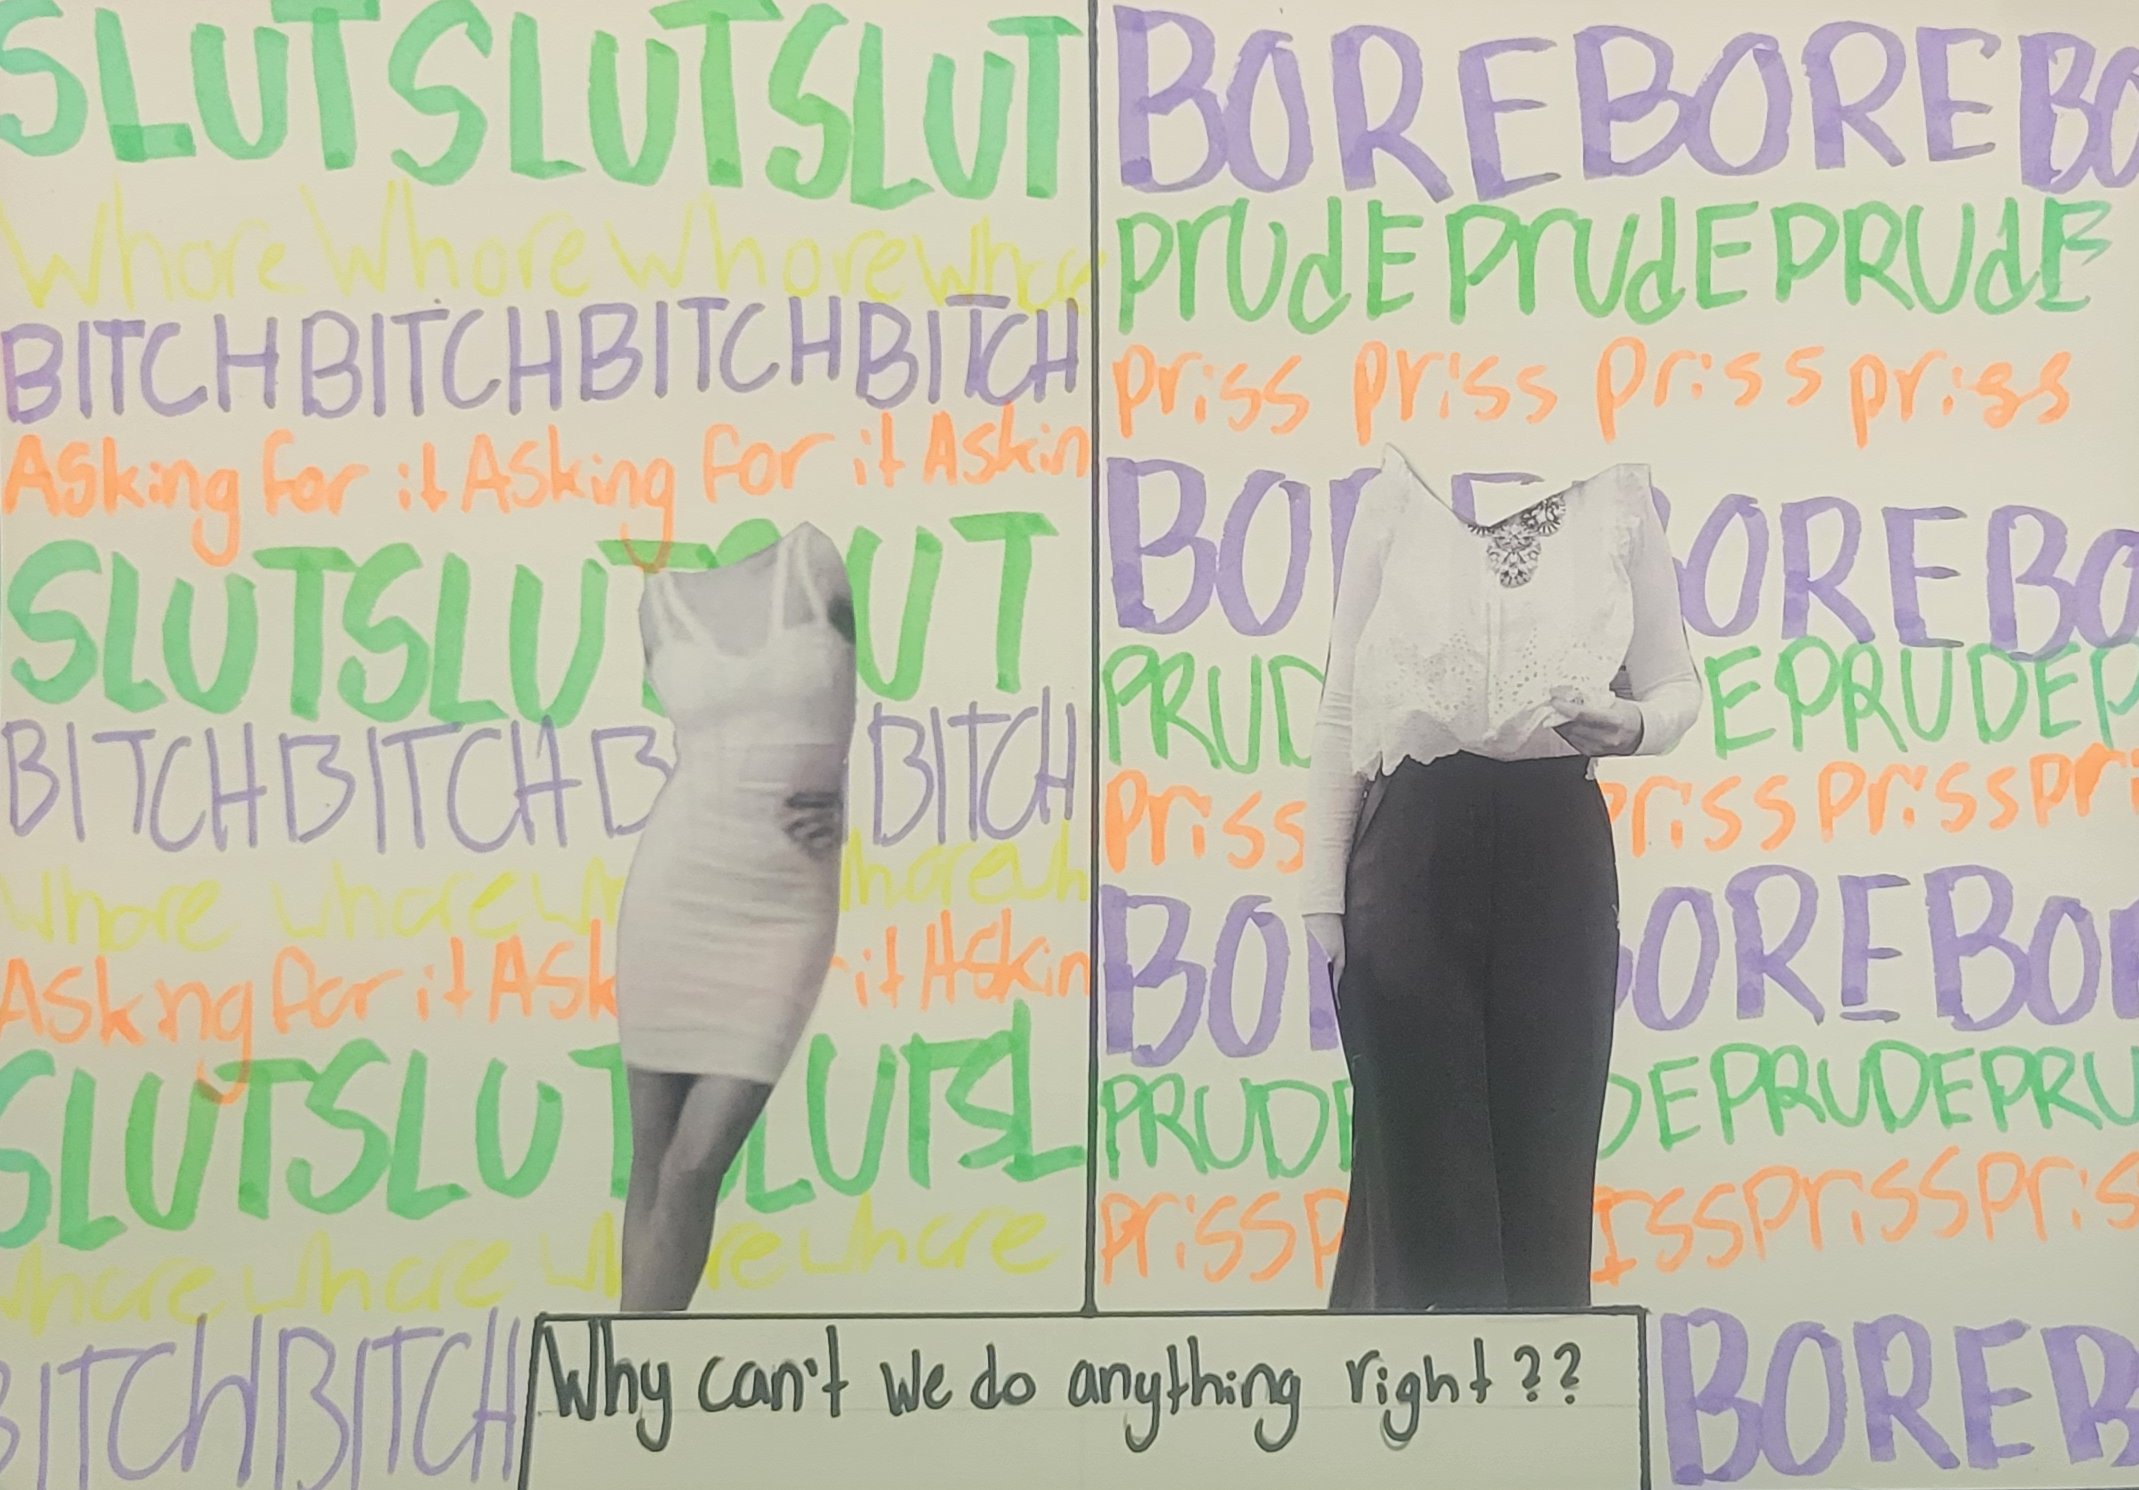 SLUTSLUTSLUT
Whore Whore Whore Whore
BITCHBITCHBITCHBITCH
Asking for it Asking for it Askin
SLUTSLUT UT
BITCHBITCHB BITCH
Whore whore wh horewh
Asking for it Ask it Askin
SLUTSLUT LUTSL
whore whore wh re whore
BITCHBITCH
BOREBOREBO
PrUdEPrUdEPRUdE
priss priss priss priss
BORE OREBO
PRUD EPRUDEP
priss priss priss pri
BO OREBO
PRUDE DEPRUDEPRU
prissp Iss priss pris
BOREB
Why can't we do anything right??